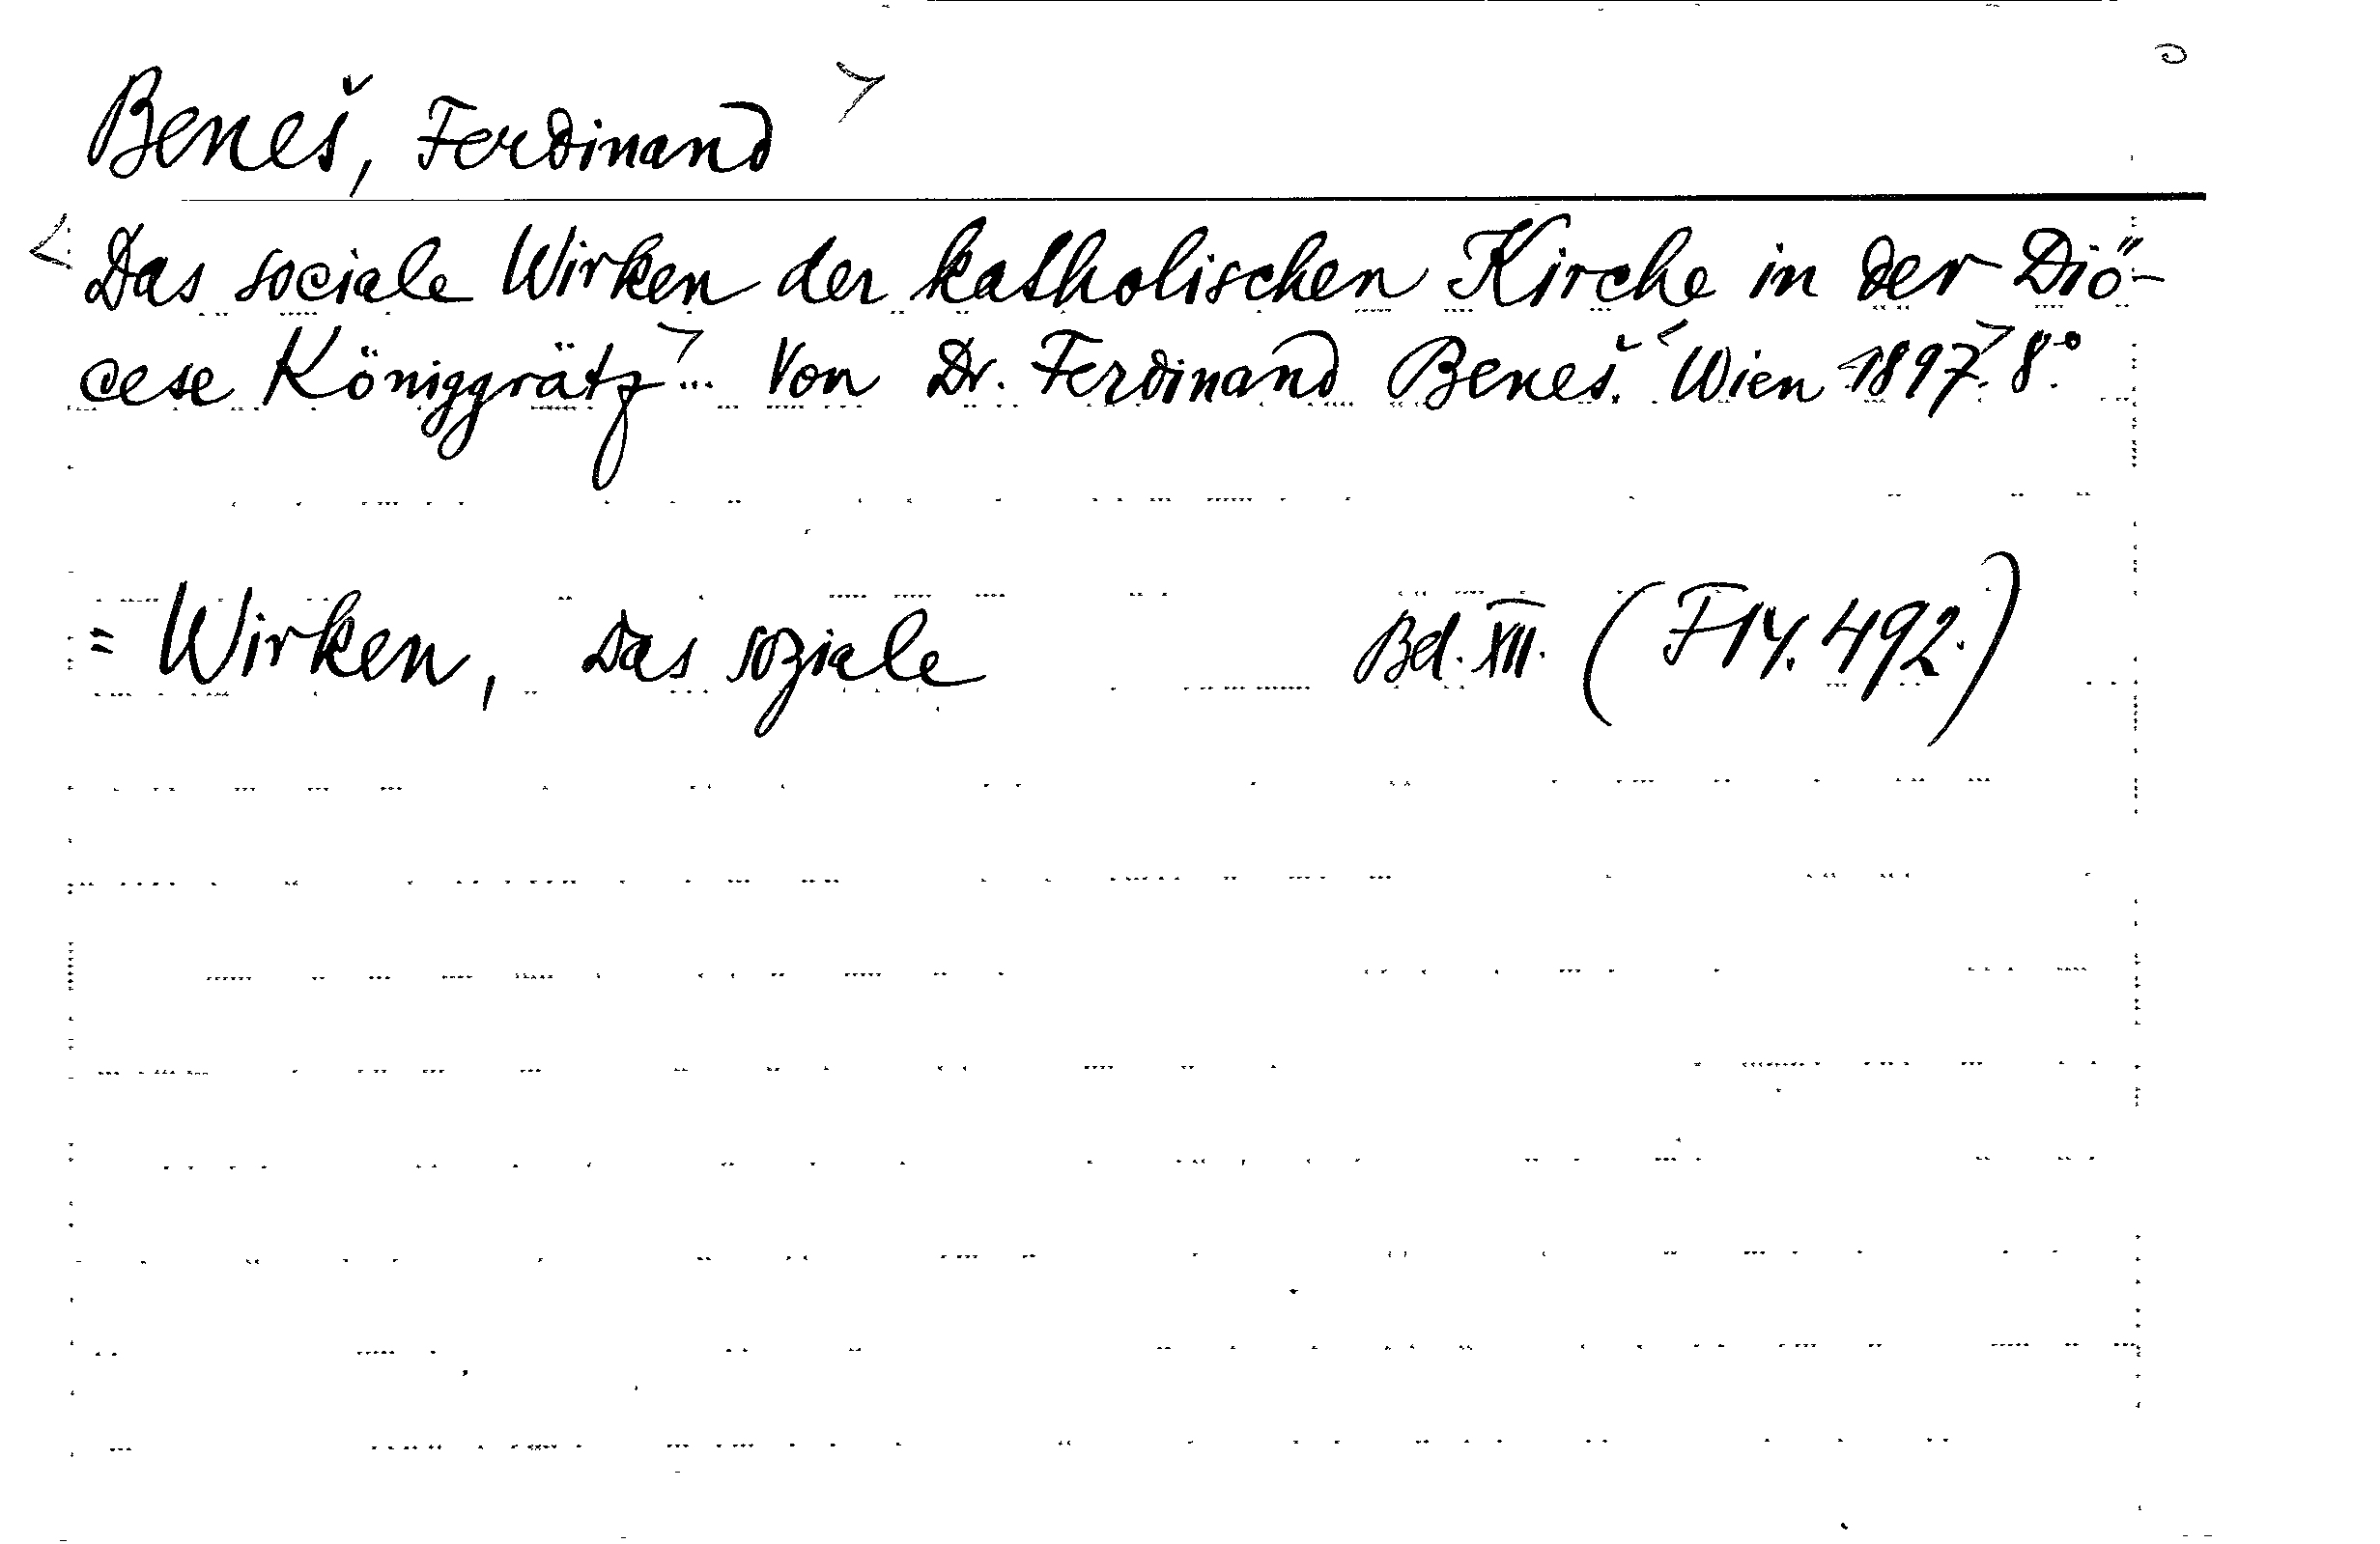 Beneš, Ferdinand >
< Das sociale Wirken der katholischen Kirche in der Diö-
cese Königgrätz > ... Von Dr. Ferdinand Beneš. < Wien 1897. > 8.°
= Wirken, Das soziale Bd. XII. (F14.492.)